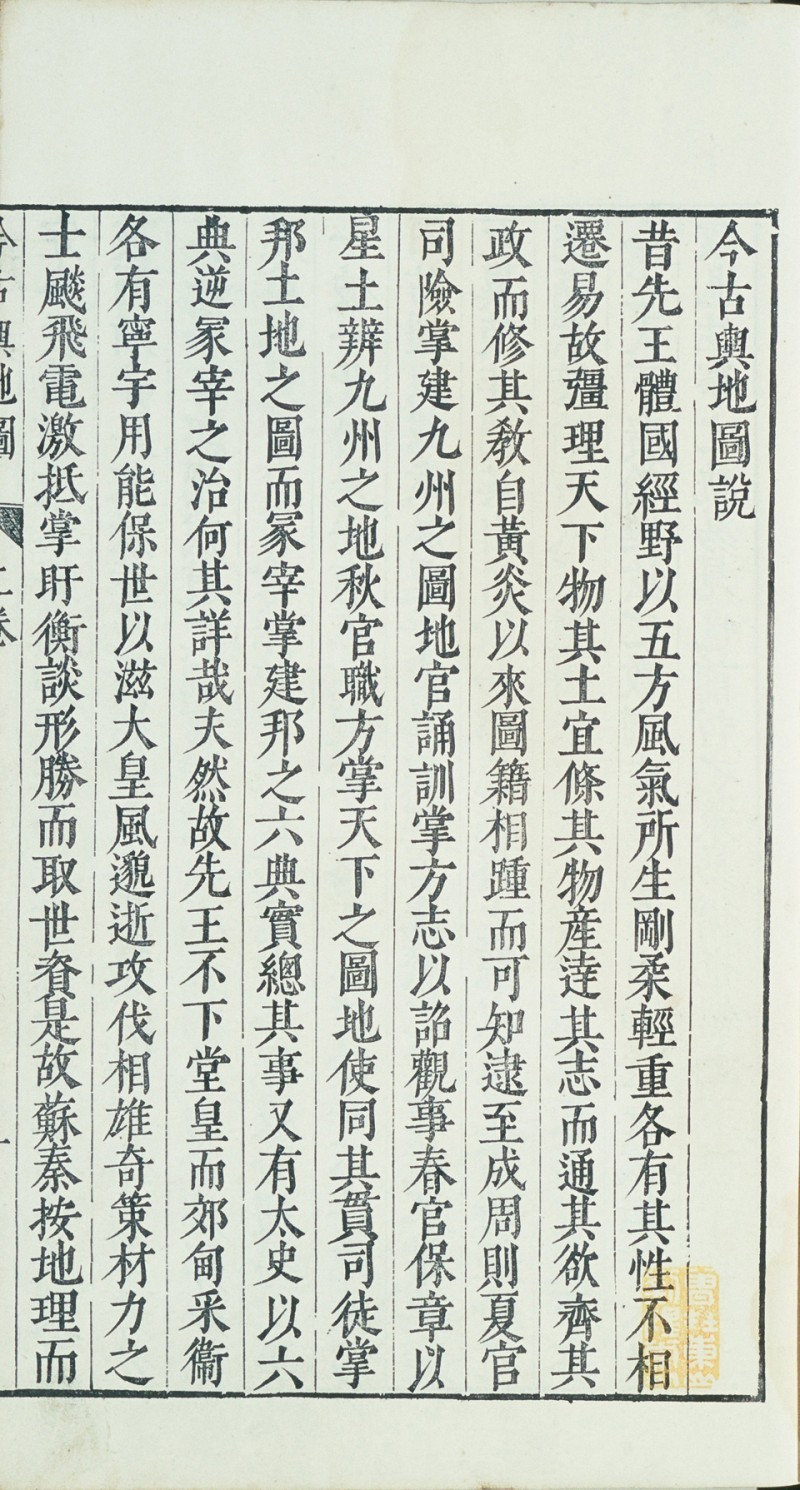 今古輿地圖說
昔先王體國經野以五方風氣所生剛柔輕重各有其性不相
遷易故疆理天下物其土宜條其物產逹其志而通其欲齊其
政而修其敎自黃炎以來圖籍相踵而可知逮至成周則夏官
司險掌建九州之圖地官誦訓掌方志以詔觀事春官保章以
星土辨九州之地秋官職方掌天下之圖地使同其貫司徒掌
邦土地之圖而冢宰掌建邦之六典實總其事又有太史以六
典逆冢宰之治何其詳哉夫然故先王不下堂皇而郊甸采衞
各有寧宇用能保世以滋大皇風邈逝攻伐相雄奇策材力之
士飈飛電激抵掌盱衡談形勝而取世資是故蘇秦按地理而
今古輿地圖 上卷 一